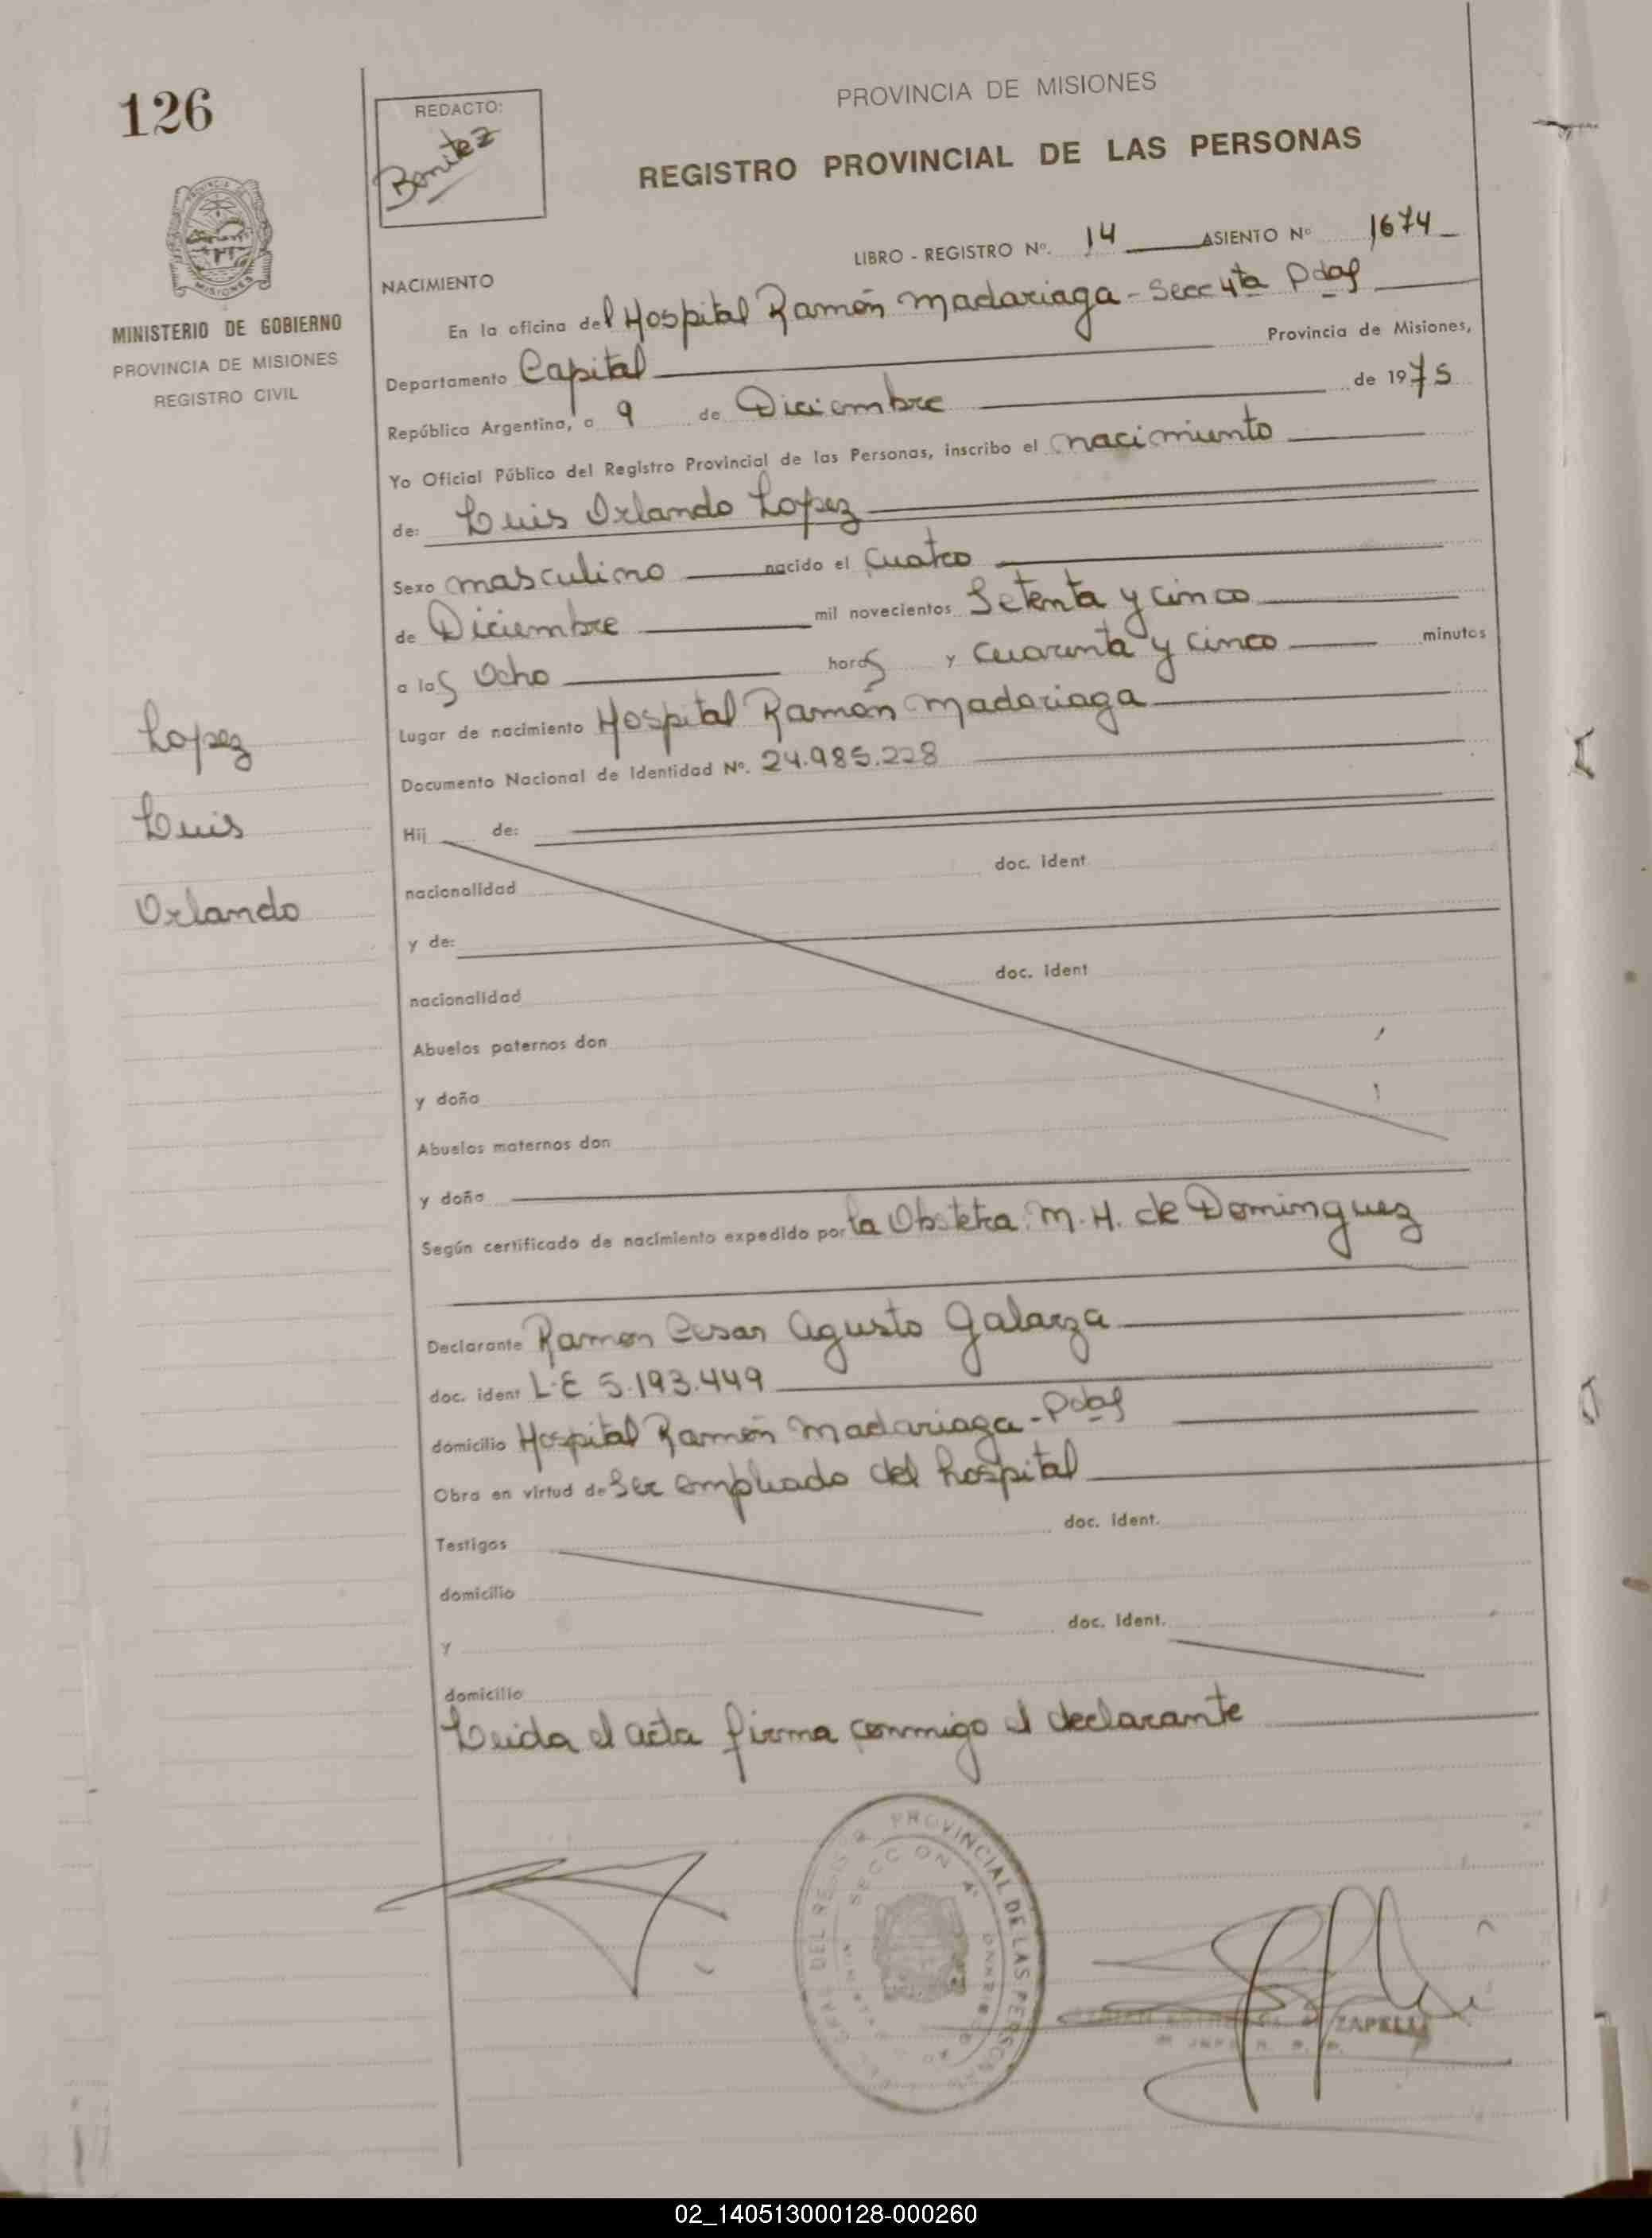 126
REDACTO:
Benitez
PROVINCIA DE MISIONES
REGISTRO PROVINCIAL DE LAS PERSONAS
LIBRO - REGISTRO Nº. 14 ASIENTO Nº 1674
PROVINCIA DE MISIONES
MINISTERIO DE GOBIERNO
PROVINCIA DE MISIONES
REGISTRO CIVIL
NACIMIENTO
En la oficina del Hospital Ramón Madariaga - Secc 4ta Pdas
Departamento Capital Provincia de Misiones,
República Argentina, a 9 de Diciembre de 1975
Yo Oficial Público del Registro Provincial de las Personas, inscribo el nacimiento
de: Luis Orlando Lopez
Sexo masculino nacido el Cuatro
de Diciembre mil novecientos Setenta y cinco
a las Ocho horas y Cuarenta y cinco minutos
Lugar de nacimiento Hospital Ramón Madariaga
Documento Nacional de Identidad Nº. 24.985.228
Lopez
Luis
Orlando
Hij de:
nacionalidad doc. ident
y de:
nacionalidad doc. ident
Abuelos paternos don
y doña
Abuelos maternos don
y doña
Según certificado de nacimiento expedido por la Obstetra M. H. de Dominguez
Declarante Ramon Cesar Agusto Galarza
doc. ident L.E 5.193.449
domicilio Hospital Ramón Madariaga - Pdas
Obra en virtud de Ser empleado del hospital
Testigos doc. ident.
domicilio
y doc. ident.
domicilio
Leida el acta firma conmigo el declarante
PROVINCIAL DE LAS PERSONAS
SECCION 4ª
ZAPELLI
02_140513000128-000260